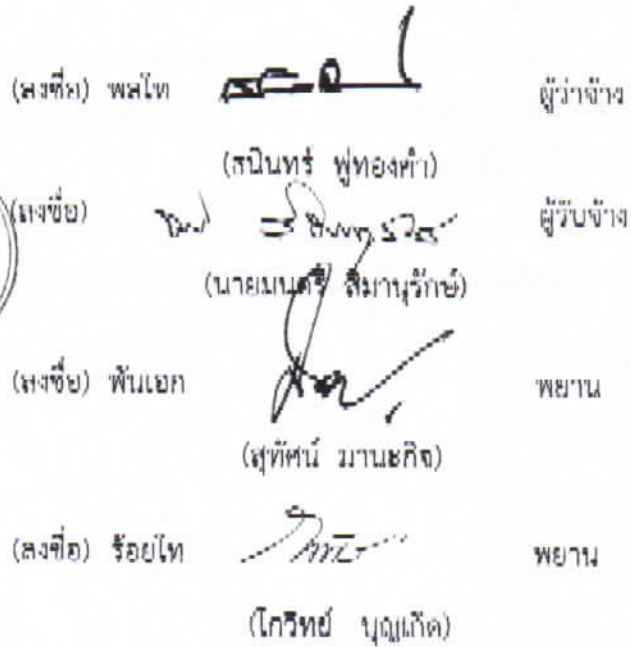 (ลงชื่อ) พลโท ผู้ว่าจ้าง
(ธนินทร์ ฟูทองคำ)
(ลงชื่อ) ผู้รับจ้าง
(นายมนตรี สีมานุรักษ์)
(ลงชื่อ) พันเอก พยาน
(สุทัศน์ มานะกิจ)
(ลงชื่อ) ร้อยโท พยาน
(โกวิทย์ บุญเกิด)